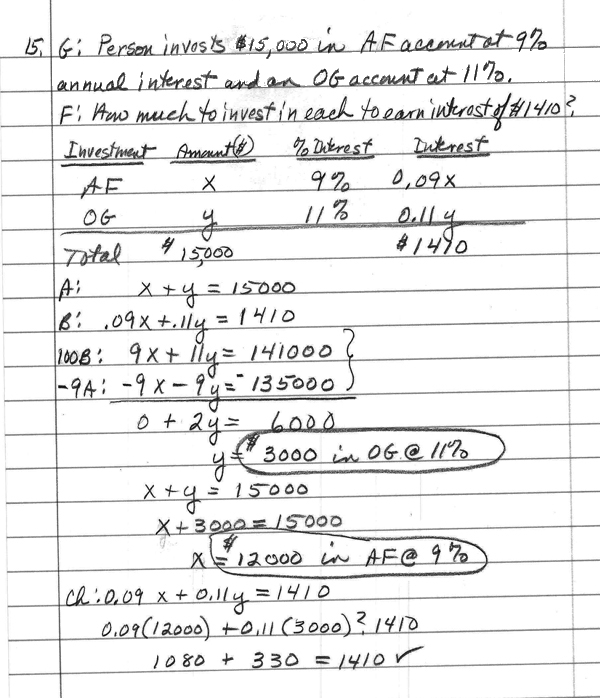 15. G: Person invests $15,000 in AF account at 9%
annual interest and an OG account at 11%.
F: How much to invest in each to earn interest of $1410?
Investment Amount($) % Interest Interest
AF x 9% 0.09x
OG y 11% 0.11y
Total $15,000 $1410
A: x + y = 15000
B: .09x + .11y = 1410
100B: 9x + 11y = 141000
-9A: -9x - 9y = -135000
0 + 2y = 6000
y = $3000 in OG @ 11%
x + y = 15000
x + 3000 = 15000
x = $12000 in AF @ 9%
Ch: 0.09 x + 0.11y = 1410
0.09(12000) + 0.11(3000) ? 1410
1080 + 330 = 1410 ✓